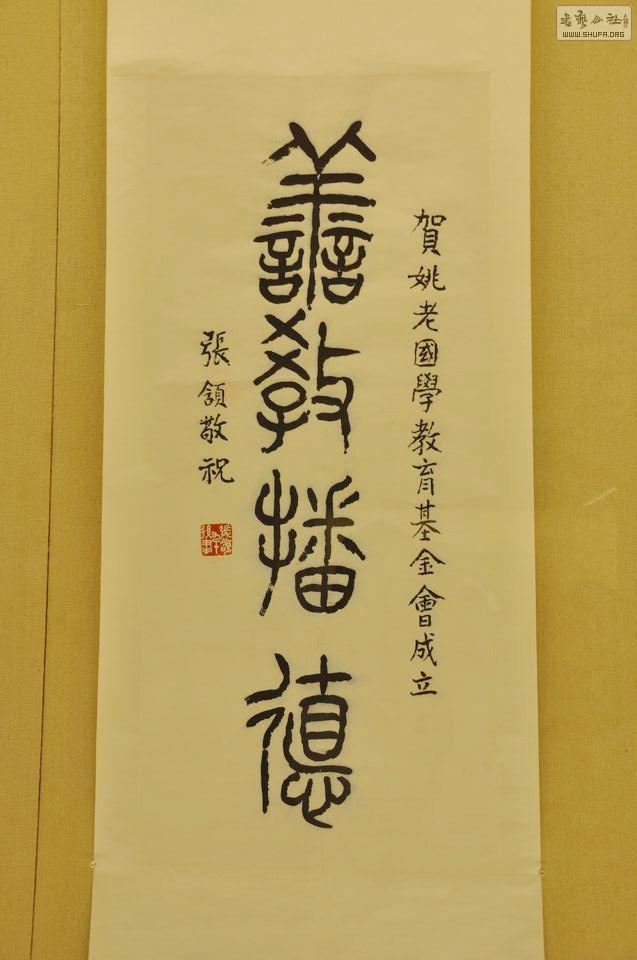 賀姚老國學教育基金會成立
譱教播德
張頷敬祝
书艺公社
WWW.SHUFA.ORG